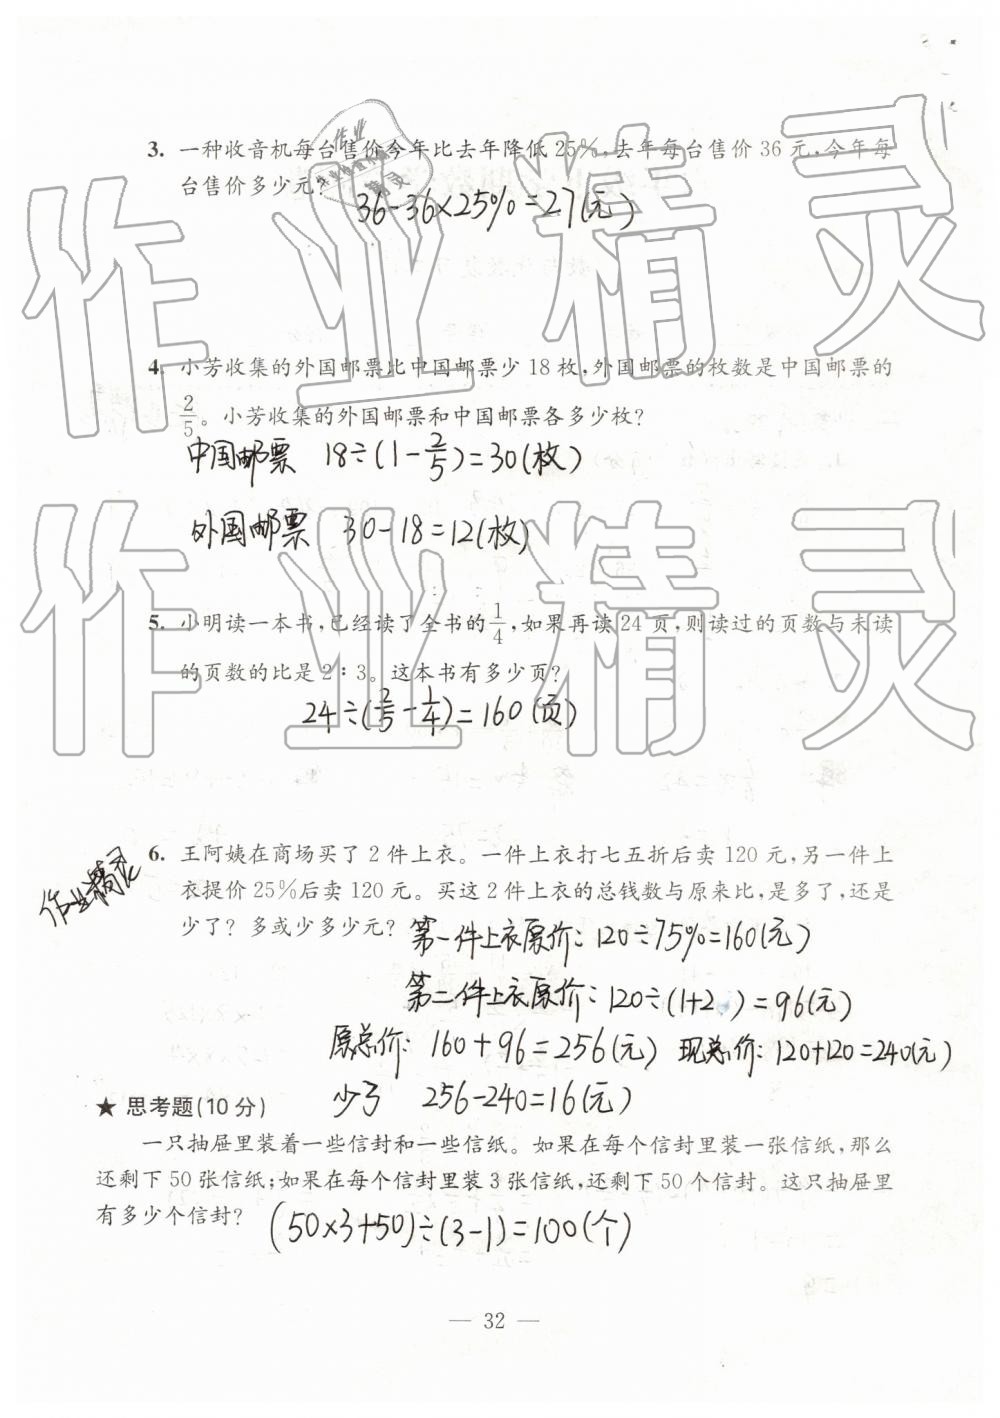 3. 一种收音机每台售价今年比去年降低25%,去年每台售价36元,今年每
台售价多少元?
36-36×25%=27(元)
4. 小芳收集的外国邮票比中国邮票少18枚,外国邮票的枚数是中国邮票的
2/5。小芳收集的外国邮票和中国邮票各多少枚?
中国邮票 18÷(1-2/5)=30(枚)
外国邮票 30-18=12(枚)
5. 小明读一本书,已经读了全书的1/4,如果再读24页,则读过的页数与未读
的页数的比是2∶3。这本书有多少页?
24÷(2/5-1/4)=160(页)
6. 王阿姨在商场买了2件上衣。一件上衣打七五折后卖120元,另一件上
衣提价25%后卖120元。买这2件上衣的总钱数与原来比,是多了,还是
少了?多或少多少元?
第一件上衣原价:120÷75%=160(元)
第二件上衣原价:120÷(1+2 )=96(元)
原总价:160+96=256(元) 现总价:120+120=240(元)
少了 256-240=16(元)
★ 思考题(10分)
一只抽屉里装着一些信封和一些信纸。如果在每个信封里装一张信纸,那么
还剩下50张信纸;如果在每个信封里装3张信纸,还剩下50个信封。这只抽屉里
有多少个信封?
(50×3+50)÷(3-1)=100(个)
— 32 —
作业精灵
作业精灵
作业精灵